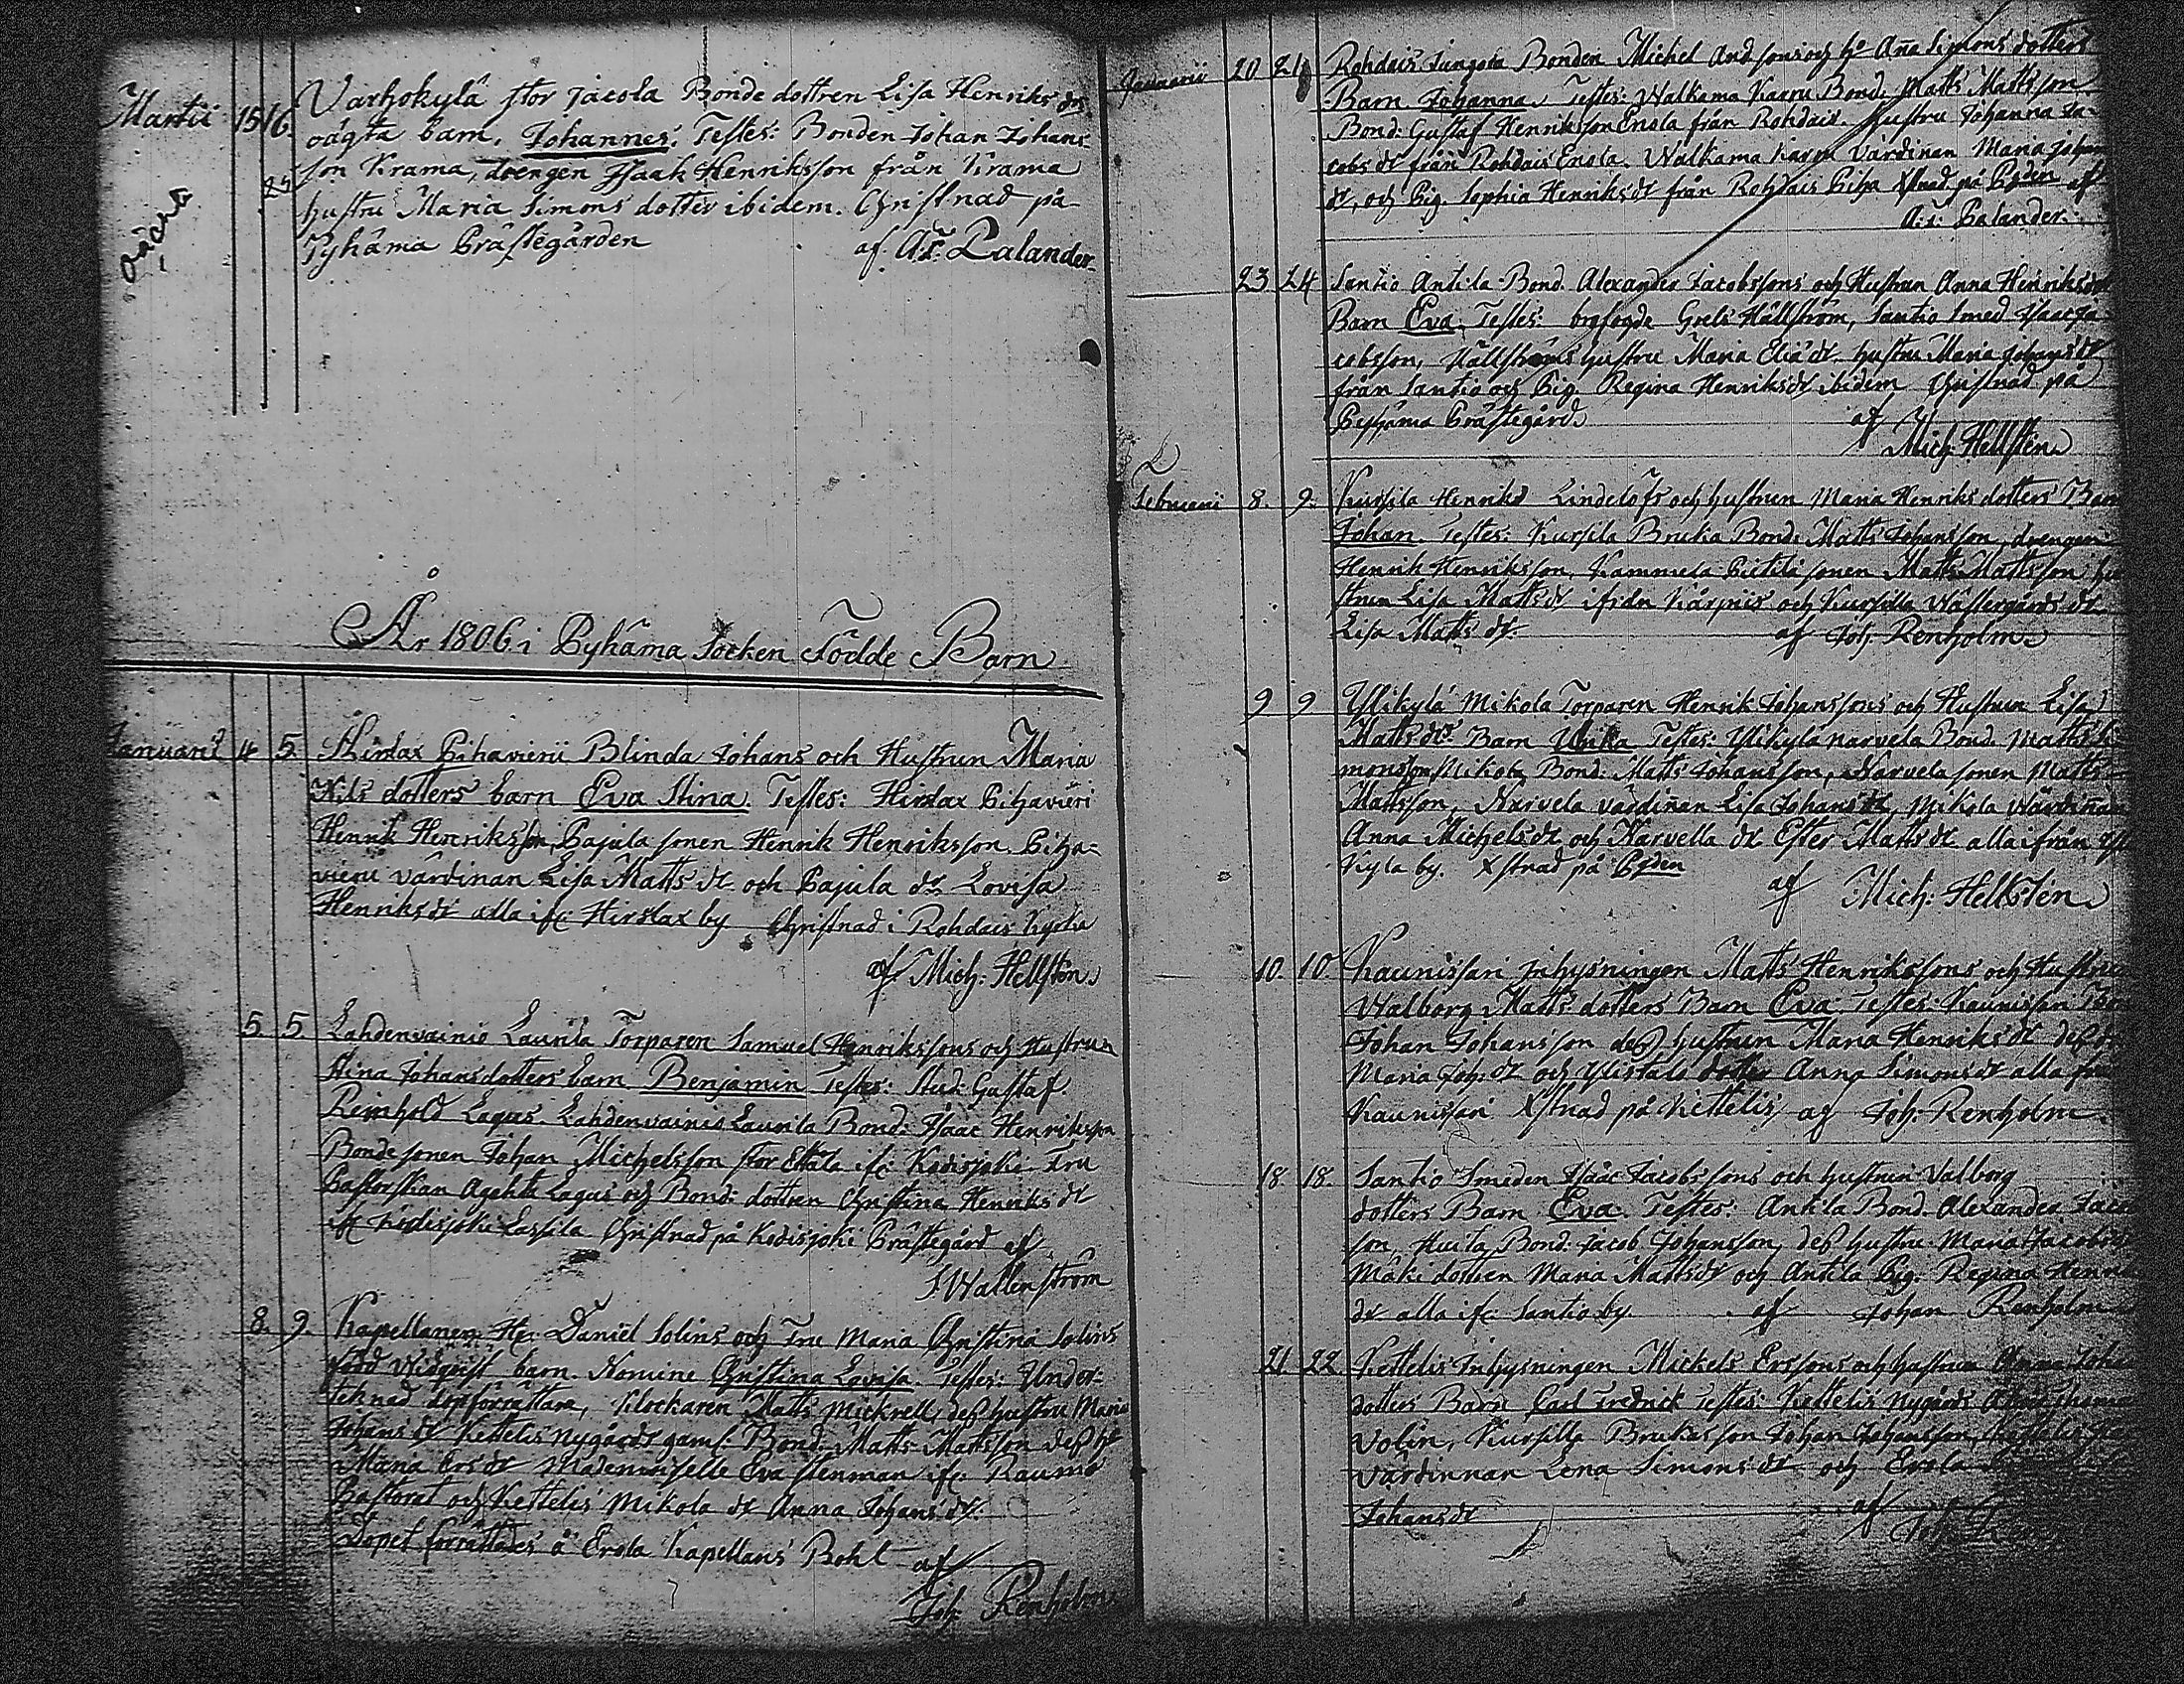 Martii 15 16 Varhokylä stor Jacola Bonde dottren Lisa Henriks drs
oägta barn, Johannes. Testes: Bonden Johan Johans
son Krama, drengen Isaak Henriksson från Krama
hustru Maria Simons dotter ibidem. Christnad på
Pyhäma Prästegården af A:s: Palander
oächta
År 1806 i Pyhäma Socken Födde Barn
Januarii 4 5 Hirslax Pihavierii Blinda Johans och Hustrun Maria
Nils dotters barn Eva Stina. Testes: Hirslax Pihavieri
Henrik Henriksson, Pajula sonen Henrik Henriksson, Piha-
vieri värdinan Lisa Matts dr och Pajula dr Lovisa
Henriks dr alla ifr: Hirslax by Christnad i Rohdais Kyrka
af Mich: Hellsten
5 5 Lahdenvainio Laurila Torparen Samuel Henrikssons och Hustrun
Stina Johans dotters barn Benjamin Testes: Stud: Gustaf
Reinhold Lagus. Lahdenvainio Laurila Bond: Isaac Henriksson
Bondesonen Johan Michelsson stor Ettala ifr: Kodisjoki Fru
Pastorskan Agatha Lagus och Bond: dottren Christina Henriks dr
ifr Kodisjoki Lassila Christnad på Kodisjoki Prästegård af
Wallenström
8. 9. Kapellanen Hr: Daniel Solins och Fru Maria Christina Solins
född Widqvist barn. Nomine Christina Lovisa. Testes: Under-
teknad dopförrättare, Klockaren Matts Mickrell, dess hustru Maria
Johans dr Kettelis nygårds gaml: Bond: Matts Mattsson dess h:
Maria Ers dr Mademoiselle Eva Stenman ifr: Raumo
Pastorat och Kettelis Mikola dr Anna Johans dr.
Dopet förrättades å Erola Kapellans Bohl af
Joh: Renholm
Januarii 20 21 Rohdais Bonden Michel And:sons och h: Anna Simons dotters
Barn Johanna. Testes: Walkama Karru Bond: Matts Mattsson
Bond: Gustaf Henriksson Enola från Rohdais. Hustru Johanna Ja-
cobs dr från Rohdais Enola. Walkama Karru värdinan Maria Johans
dr, och Pig. Sophia Henriks dr från Rohdais Piha Xstnad på Pgden af
A:s: Palander.
23 24 Santio Antila Bond. Alexander Jacobssons och Hustrun Anna Henriks dr
Barn Eva. Testes: Grels Hällström, Santio Smed Isaac Ja-
cobsson, Hällströms hustru Maria Eliä dr. hustru Maria Johans dr
från Santio och Pig. Regina Henriks dr ibidem Christnad på
Pyhäma Prästegård af
Mich: Hellsten
Februarii 8. 9. Kursila Henrik Lindelöfs och hustrun Maria Henriks dotters Barn
Johan. Testes: Kursila Bruka Bond: Matts Johansson, drengen
Henrik Henriksson, Kammela Pietilä sonen Matts Mattsson hu-
strun Lisa Matts dr ifrån och Kursilla Wästergårds dr
Lisa Matts dr. af Joh: Renholm
9 9 Ylikylä Mikola Torparen Henrik Johanssons och Hustrun Lisa
Matts drs Barn Ulrika Testes: Ylikylä Narvela Bond. Matts Si-
monsson, Mikola Bond: Matts Johansson, Narvela sonen Matts
Mattsson, Narvela värdinan Lisa Johans dr, Mikola Wärdinan
Anna Michels dr och Narvella dr Ester Matts dr alla ifrån Yli
Kyla by. Xstnad på Pgden
af Mich: Hellsten
10. 10. Kaunissari Inhysningen Matts Henrikssons och Hustrun
Walborg Matts dotters Barn Eva. Testes: Kaunissari
Johan Johansson dess hustrun Maria Henriks dr dess dr
Maria Joh: dr och Ylistalo dotter Anna Simons dr alla från
Kaunissari Xstnad på Kettelis af Joh: Renholm
18 18. Santio Smeden Isaac Jacobssons och hustrun Valborg
dotters Barn Eva. Testes: Antila Bond. Alexander Jacob
son, Bond: Jacob Johansson, dess hustru Maria Jacobs
Mäki dottren Maria Matts dr och Antila Pig: Regina Henriks
dr alla ifr: Santio by. af Johan Renholm
21 22 Kettelis Inhysningen Mickels Erssons och hustrun Anna Johans
dotters Barn Carl Fredrick Testes: Kettelis nygårds
Volin, Kursilla Brukas son Johan Johansson, Kettelis
värdinnan Lena Simons dr och Erola
Johans dr af